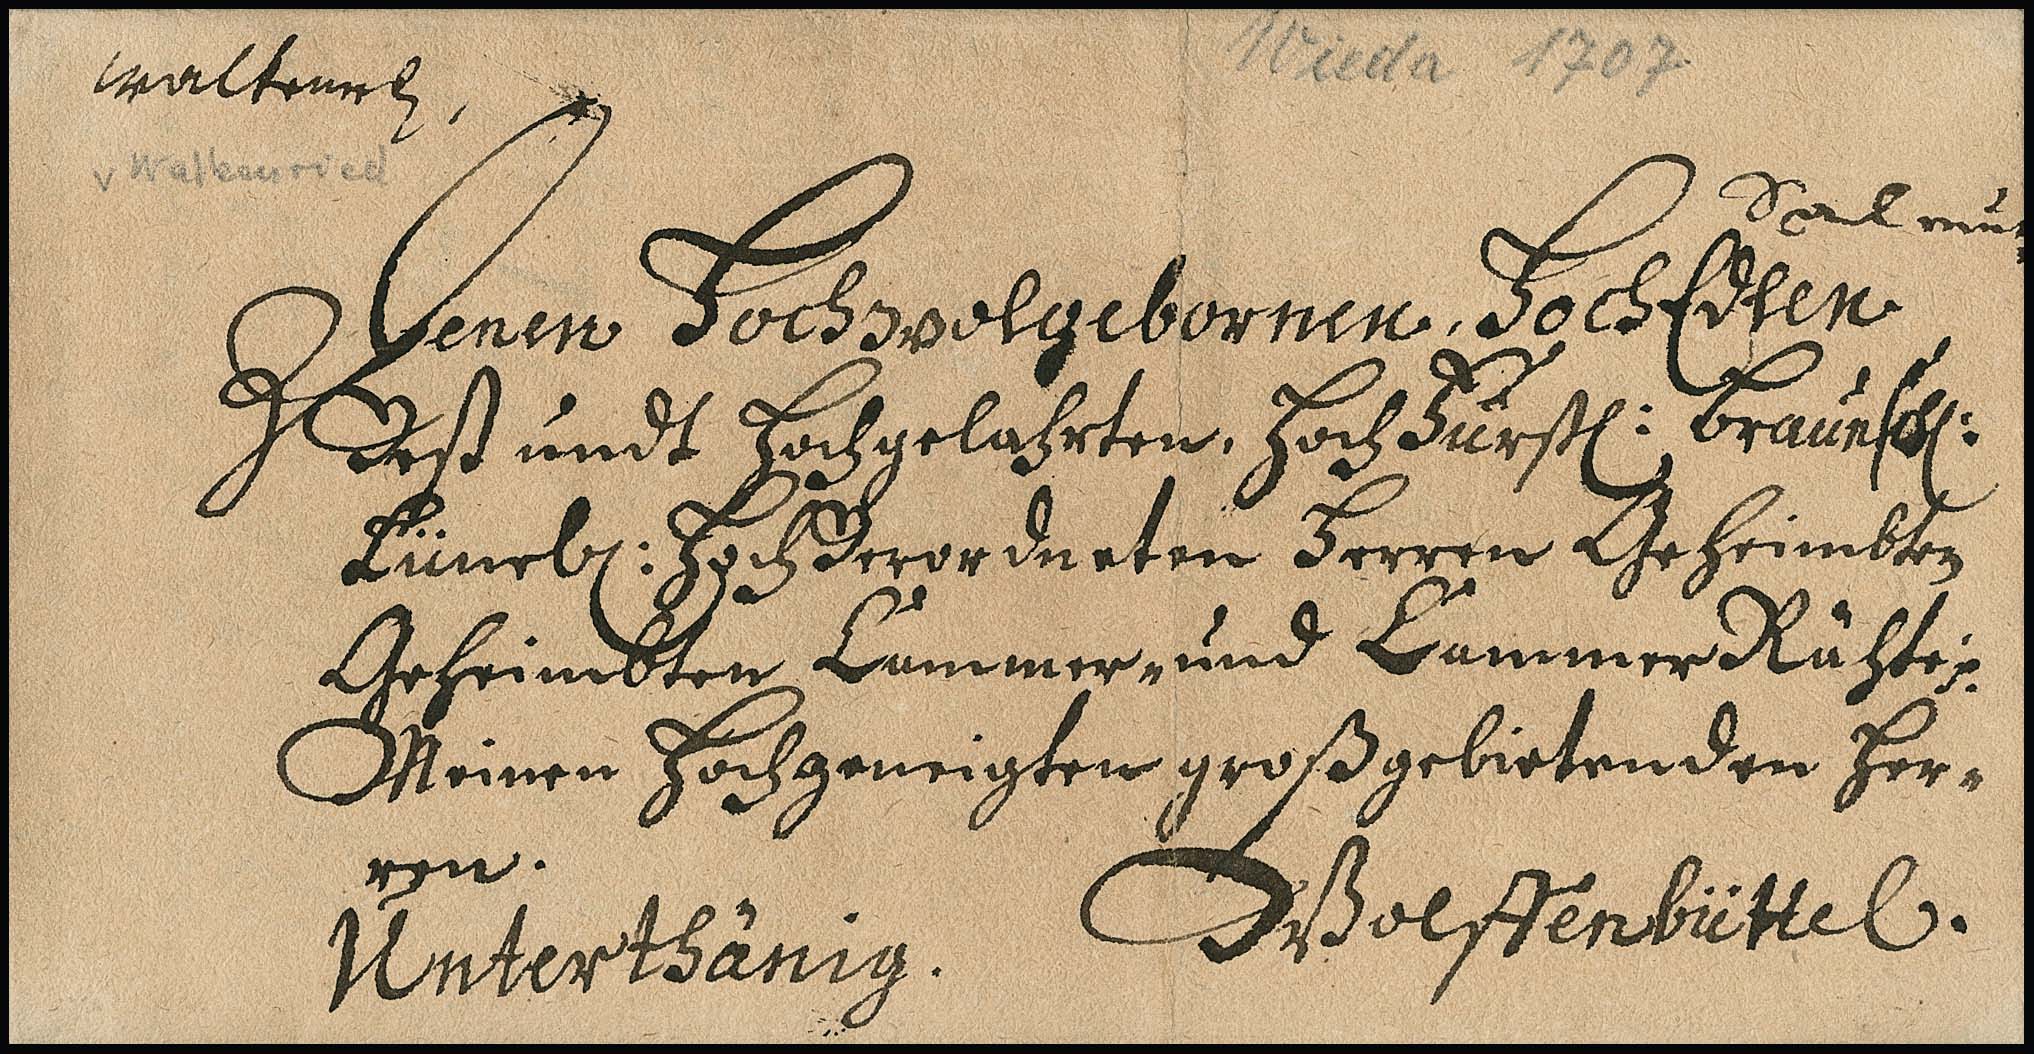 Wieda 1707
v Walkenried
Denen Hochwolgebornen, HochEdlen
Vest undt Hochgelahrten, HochFürstl: Braunschl:
Lüneb: HochVerordneten Herren Geheimbten
Geheimbten Cammer- und Cammer Rähten.
Meinen Hochgeneigten großgebietenden Her-
ren.
Unterthänig.
Wolffenbüttel.